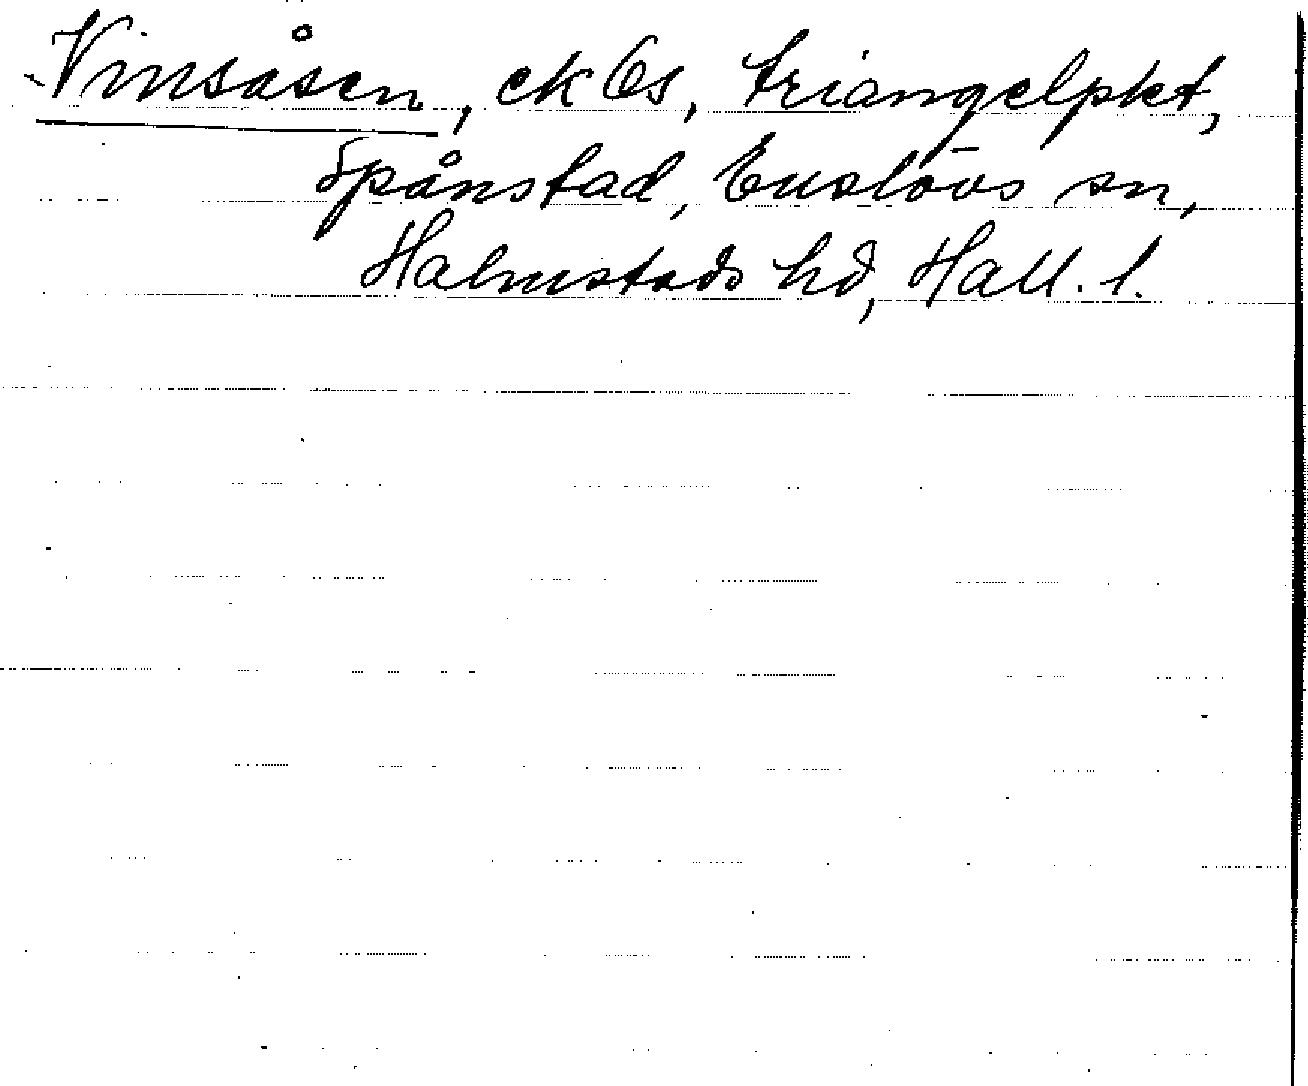 Vinsåsen, ek bs, triangelpkt,
Spånstad, Enslövs sn,
Halmstads hd, Hall. l.